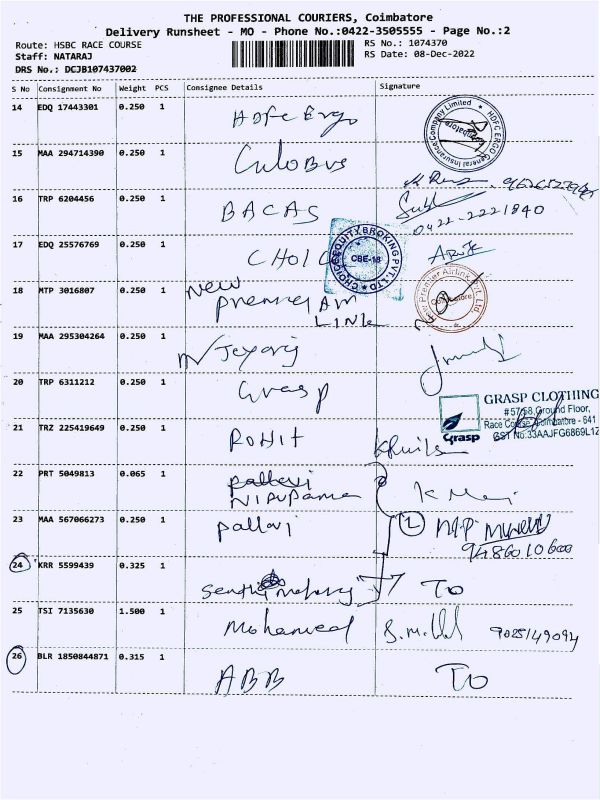 THE PROFESSIONAL COURIERS, Coimbatore
Delivery Runsheet - MO - Phone No.:0422-3505555 - Page No.:2
Route: HSBC RACE COURSE
RS No.: 1074370
Staff: NATARAJ
RS Date: 08-Dec-2022
DRS No.: DCJB107437002
S No Consignment No Weight PCS Consignee Details Signature
14 EDQ 17443301 0.250 1 HDFC Ergo
HDFC ERGO General Insurance Company Limited
15 MAA 294714390 0.250 1
16 TRP 6204456 0.250 1 BACAS 0422-2221840
17 EDQ 25576769 0.250 1 CHOIC
CHOICE EQUITY BROKING PVT. LTD
CBE-18
18 MTP 3016807 0.250 1 New
Premier Air
Link
Premier Airlink Pvt. Ltd
19 MAA 295304264 0.250 1 Jeyaraj
20 TRP 6311212 0.250 1 Grasp
GRASP CLOTHING
#57/58, Ground Floor,
Race Course, Coimbatore - 641
GST No:33AAJFG6869L1Z
Grasp
21 TRZ 225419649 0.250 1 ROHIT
22 PRT 5049813 0.065 1 Pallavi
Nirupama
23 MAA 567066273 0.250 1 Pallavi
9486010600
24 KRR 5599439 0.325 1 TO
25 TSI 7135630 1.500 1 Mohamed 9025149094
26 BLR 1850844871 0.315 1 ABB TO